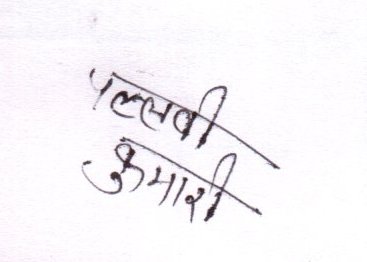 पल्लवी
कुमारी